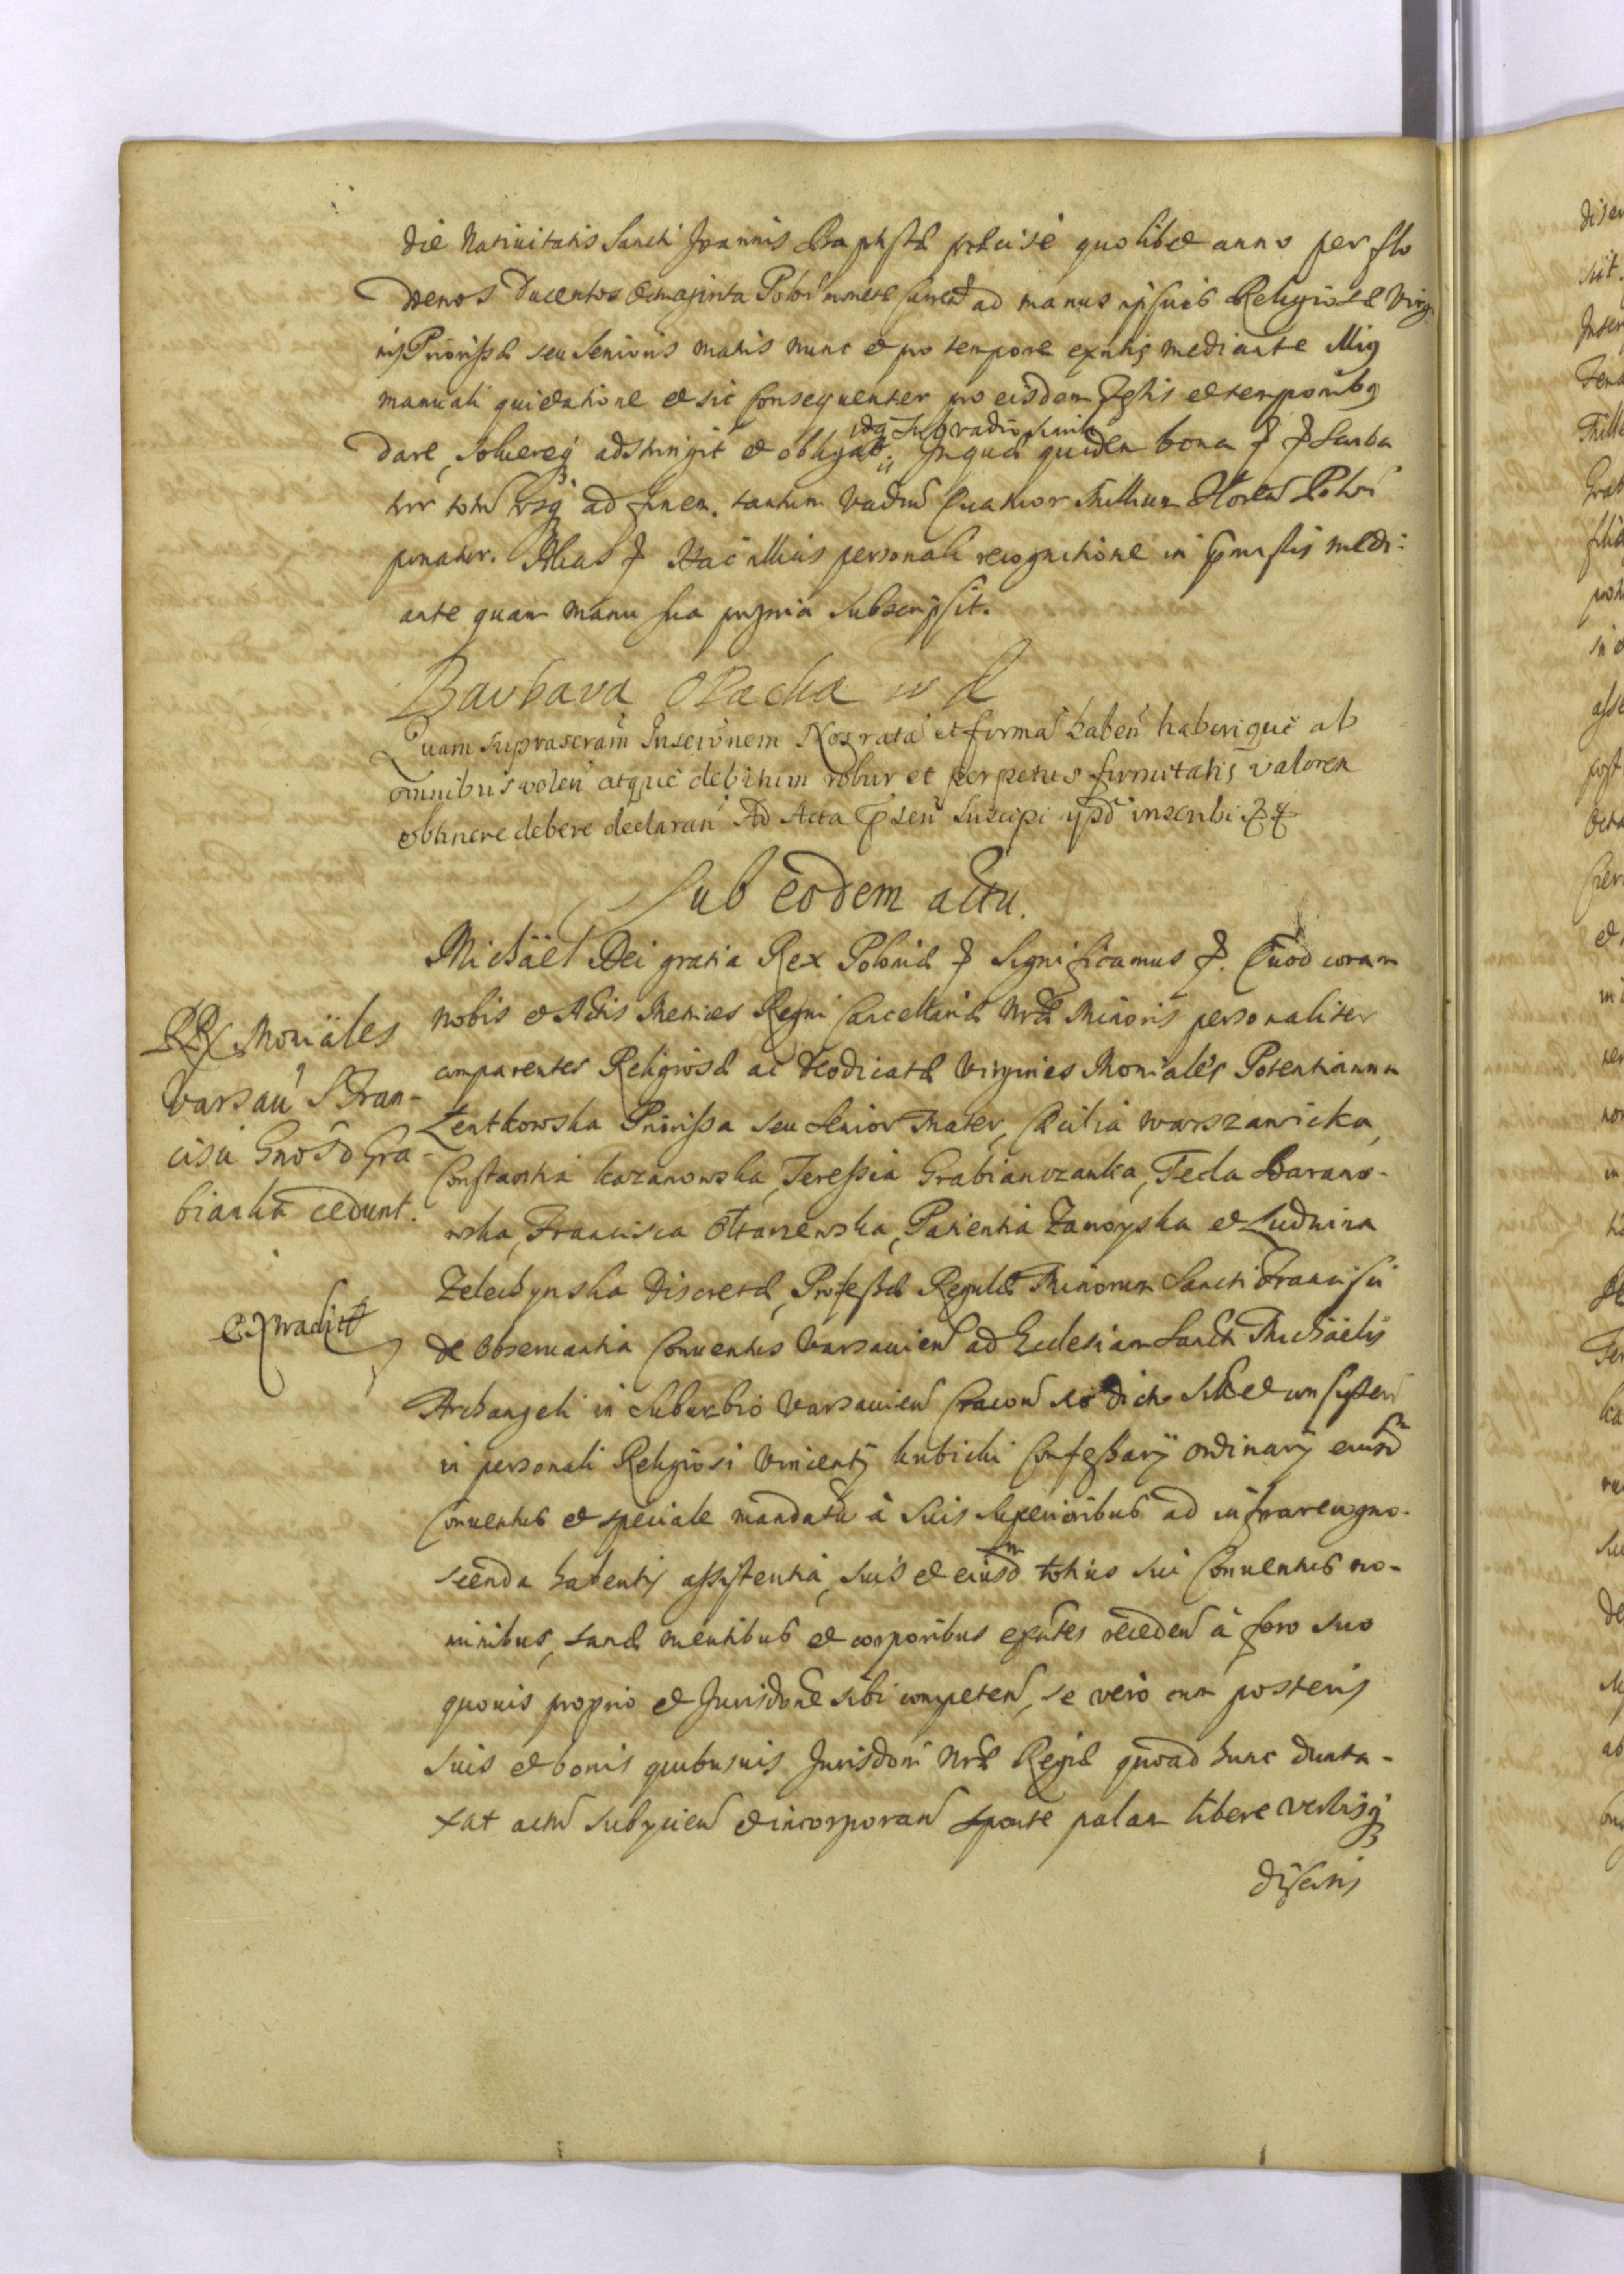 die Natiuitatis Sancti Joannis Baptistæ præcise quolibet anno per flo
renos Ducentos Octuaginta Polon monetæ ad manus ipsius Religiosæ Virgi
nis Priorissæ seu Senioris matris nunc et pro tempore exntis mediante illius
manuali quietatione et sic consequenter pro eisdem festis et temporibus
dare, soluereq adstringit et obligat. In quæ quidem bona
idq sub vadio simili
ad finem. tantum vadiū Quatuor Millium Floren Polon
ponatur. Alias Hac illius personali recognitione in præmissis medi-
ante quam manu sua propria subscripsit.
Barbara Opacka
Quam suprascram Inscrōnem Nos ratā et firmā haberi haberique ab
omnibus volen atque debitum robur et perpetuæ firmitatis valorem
obtinere debere declaran Ad Acta præsen Suscipi ypsd inscribi
Sub eodem actu.
Michäel Dei gratia Rex Poloniæ Significamus. Quod coram
nobis et Actis Metrices Regni Cancellariæ nræ Minoris personaliter
comparentes Religiosæ ac Deodicatæ Virgines Moniales Potentianna
Lentkowska Priorissa seu Senior Mater, Cæcilia Warszawicka,
Constantia Kazanowska, Teressia Grabianczanka, Tecla Barano-
wska, Francisca Olszewska, Patientia Zamoyska et Ludwina
Zelechynska Discretæ, Professæ Regulæ Minorum Sancti Francisci
de Obseruantia Conuentus Varsauien ad Ecclesiam Sancti Michäelis
Archangeli in suburbio Varsauien Cracou dicto Sitæ et consisten
in personali Religiosi Vincenty Kubicki Confessary ordinary eiusdm
Conuentus et speciale mandatū à suis superioribus ad infrarecogno-
scenda habentis assistentia, suis et eiusdm totius sui Conuentus no-
minibus, sanæ mentibus et corporibus exntes receden à foro suo
quouis proprio et Jurisdone sibi competen, se vero cum posteris
suis et bonis quibusuis Jurisdoni nræ Regiæ quoad hunc dunta-
xat actū subycien et incorporan sponte palam libere verbisq
disertis
RR Moniales
Varsau S Fran-
cisci Gnoso Gra-
bianka cedunt.
Extradit